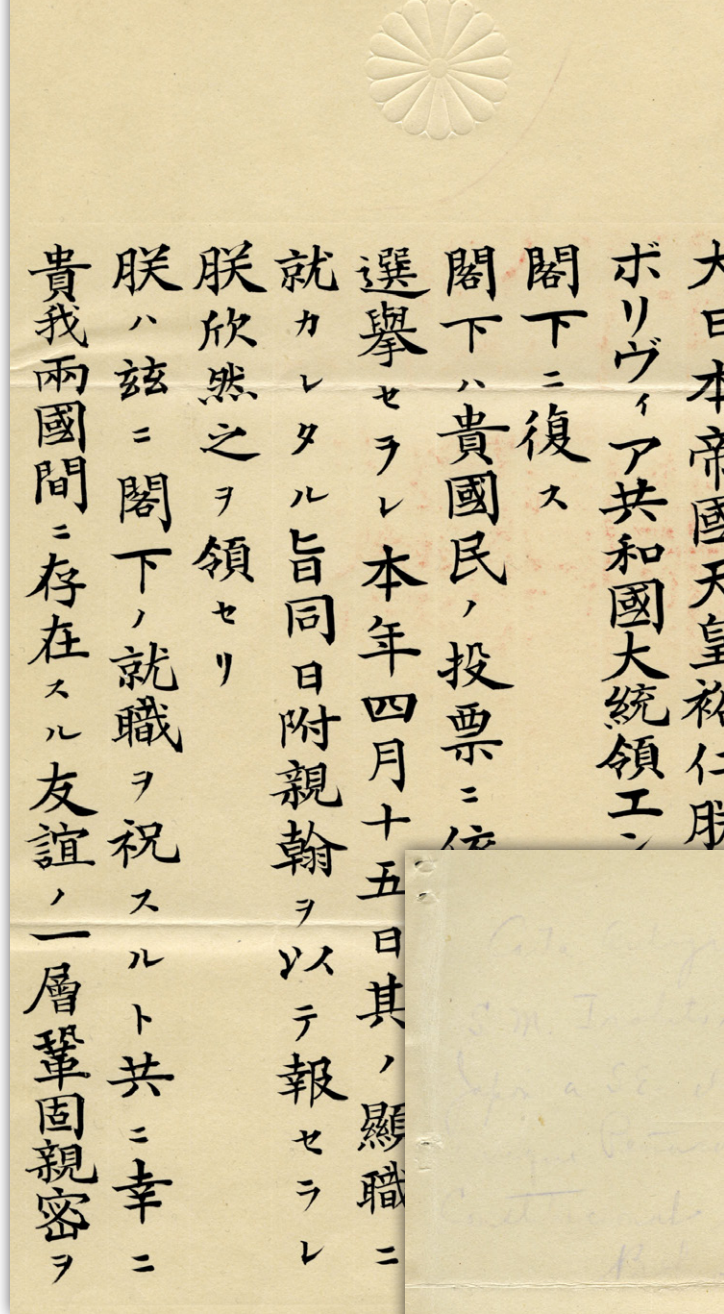 大日本帝國天皇裕仁朕
ボリヴィア共和國大統領エン
閣下ニ復ス
閣下ハ貴國民ノ投票ニ依
選擧セラレ本年四月十五日其ノ顯職ニ
就カレタル旨同日附親翰ヲ以テ報セラレ
朕欣然之ヲ領セリ
朕ハ玆ニ閣下ノ就職ヲ祝スルト共ニ幸ニ
貴我兩國間ニ存在スル友誼ノ一層鞏固親密ヲ